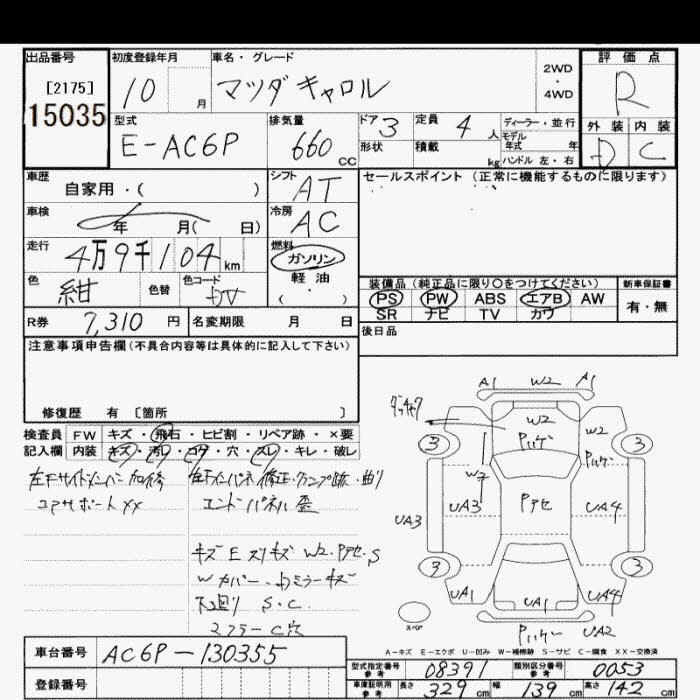 出品番号
[2175]
15035
初度登録年月
10 月
車名・グレード
マツダ キャロル
2WD
・
4WD
評価点
R
外装 内装
D C
型式
E-AC6P
排気量
660 CC
ドア 3
形状
定員 4 人
積載 kg
ディーラー・並行
モデル年式 年
ハンドル 左・右
車歴
自家用・( )
シフト AT
セールスポイント (正常に機能するものに限ります)
車検
年 月( 日)
冷房 AC
走行
4万9千104 km
燃料
ガソリン
軽油
・
( )
色
紺
色替
色コード
DV
装備品 (純正品に限り〇をつけてください)
PS PW ABS エアB AW
SR ナビ TV カワ
新車保証書
有・無
R券 7,310 円
名変期限 月 日
後日品
注意事項申告欄(不具合内容等は具体的に記入して下さい)
修復歴 有 〔箇所 〕
検査員 FW キズ・飛石・ヒビ割・リペア跡・×要
記入欄 内装 キズ・汚レ・コゲ・穴・スレ・キレ・破レ
左Fサイドメンバー 加修
コアサポートXX
修正・クランプ跡・曲り
エンドパネル 歪
キズ E スリキズ W2・Pアセ・S
W カバー・ Dミラーキズ
下廻り S・C
マフラーC穴
A1 W2 A1
W2
Pハゲ
W2
Pハゲ
3 3
W2
UA3
UA3
Pアセ
UA4
3 3
UA1
UA1
UA4
スペア
Pハゲ UA2
A-キズ E-エクボ U-凹み W-補修跡 S-サビ C-腐食 XX-交換済
車台番号 AC6P-130355
登録番号
型式指定番号
参考
08391
類別区分番号
参考
0053
車庫証明用
参考
長さ 329 cm 幅 139 cm 高さ 142 cm